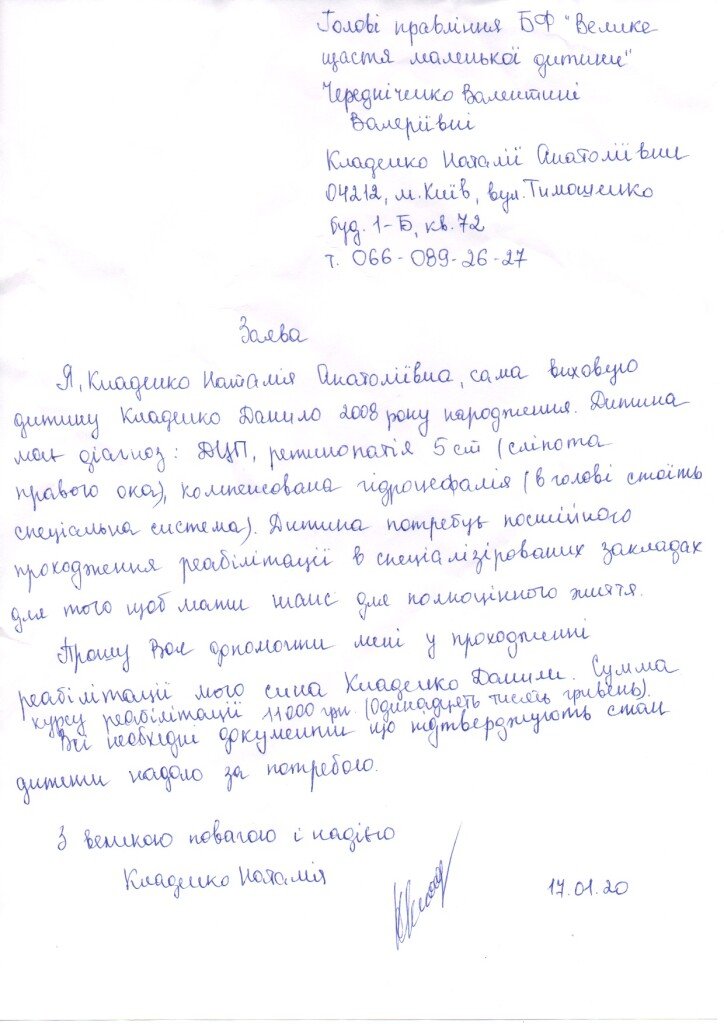 Голові правління БФ "Велике
щастя маленької дитини"
Чередніченко Валентині
Валеріївні
Кладенко Наталії Анатоліївни
04212, м. Київ, вул. Тимошенко
буд. 1-Б, кв. 72
т. 066-089-26-27
Заява
Я, Кладенко Наталія Анатоліївна, сама виховую
дитину Кладенко Данило 2008 року народження. Дитина
має діагноз: ДЦП, ретинопатія 5 ст (сліпота
правого ока), компенсована гідроцефалія (в голові стоїть
спеціальна система). Дитина потребує постійного
проходження реабілітації в спеціалізірованих закладах
для того щоб мати шанс для полноцінного життя.
Прошу Вас допомогти мені у проходженні
реабілітації мого сина Кладенко Данили. Сумма
курсу реабілітації 11000 грн. (Одинадцять тисяч гривень).
Всі необхідні документи що підтверджують стан
дитини надаю за потребою.
З великою повагою і надією
Кладенко Наталія
17.01.20